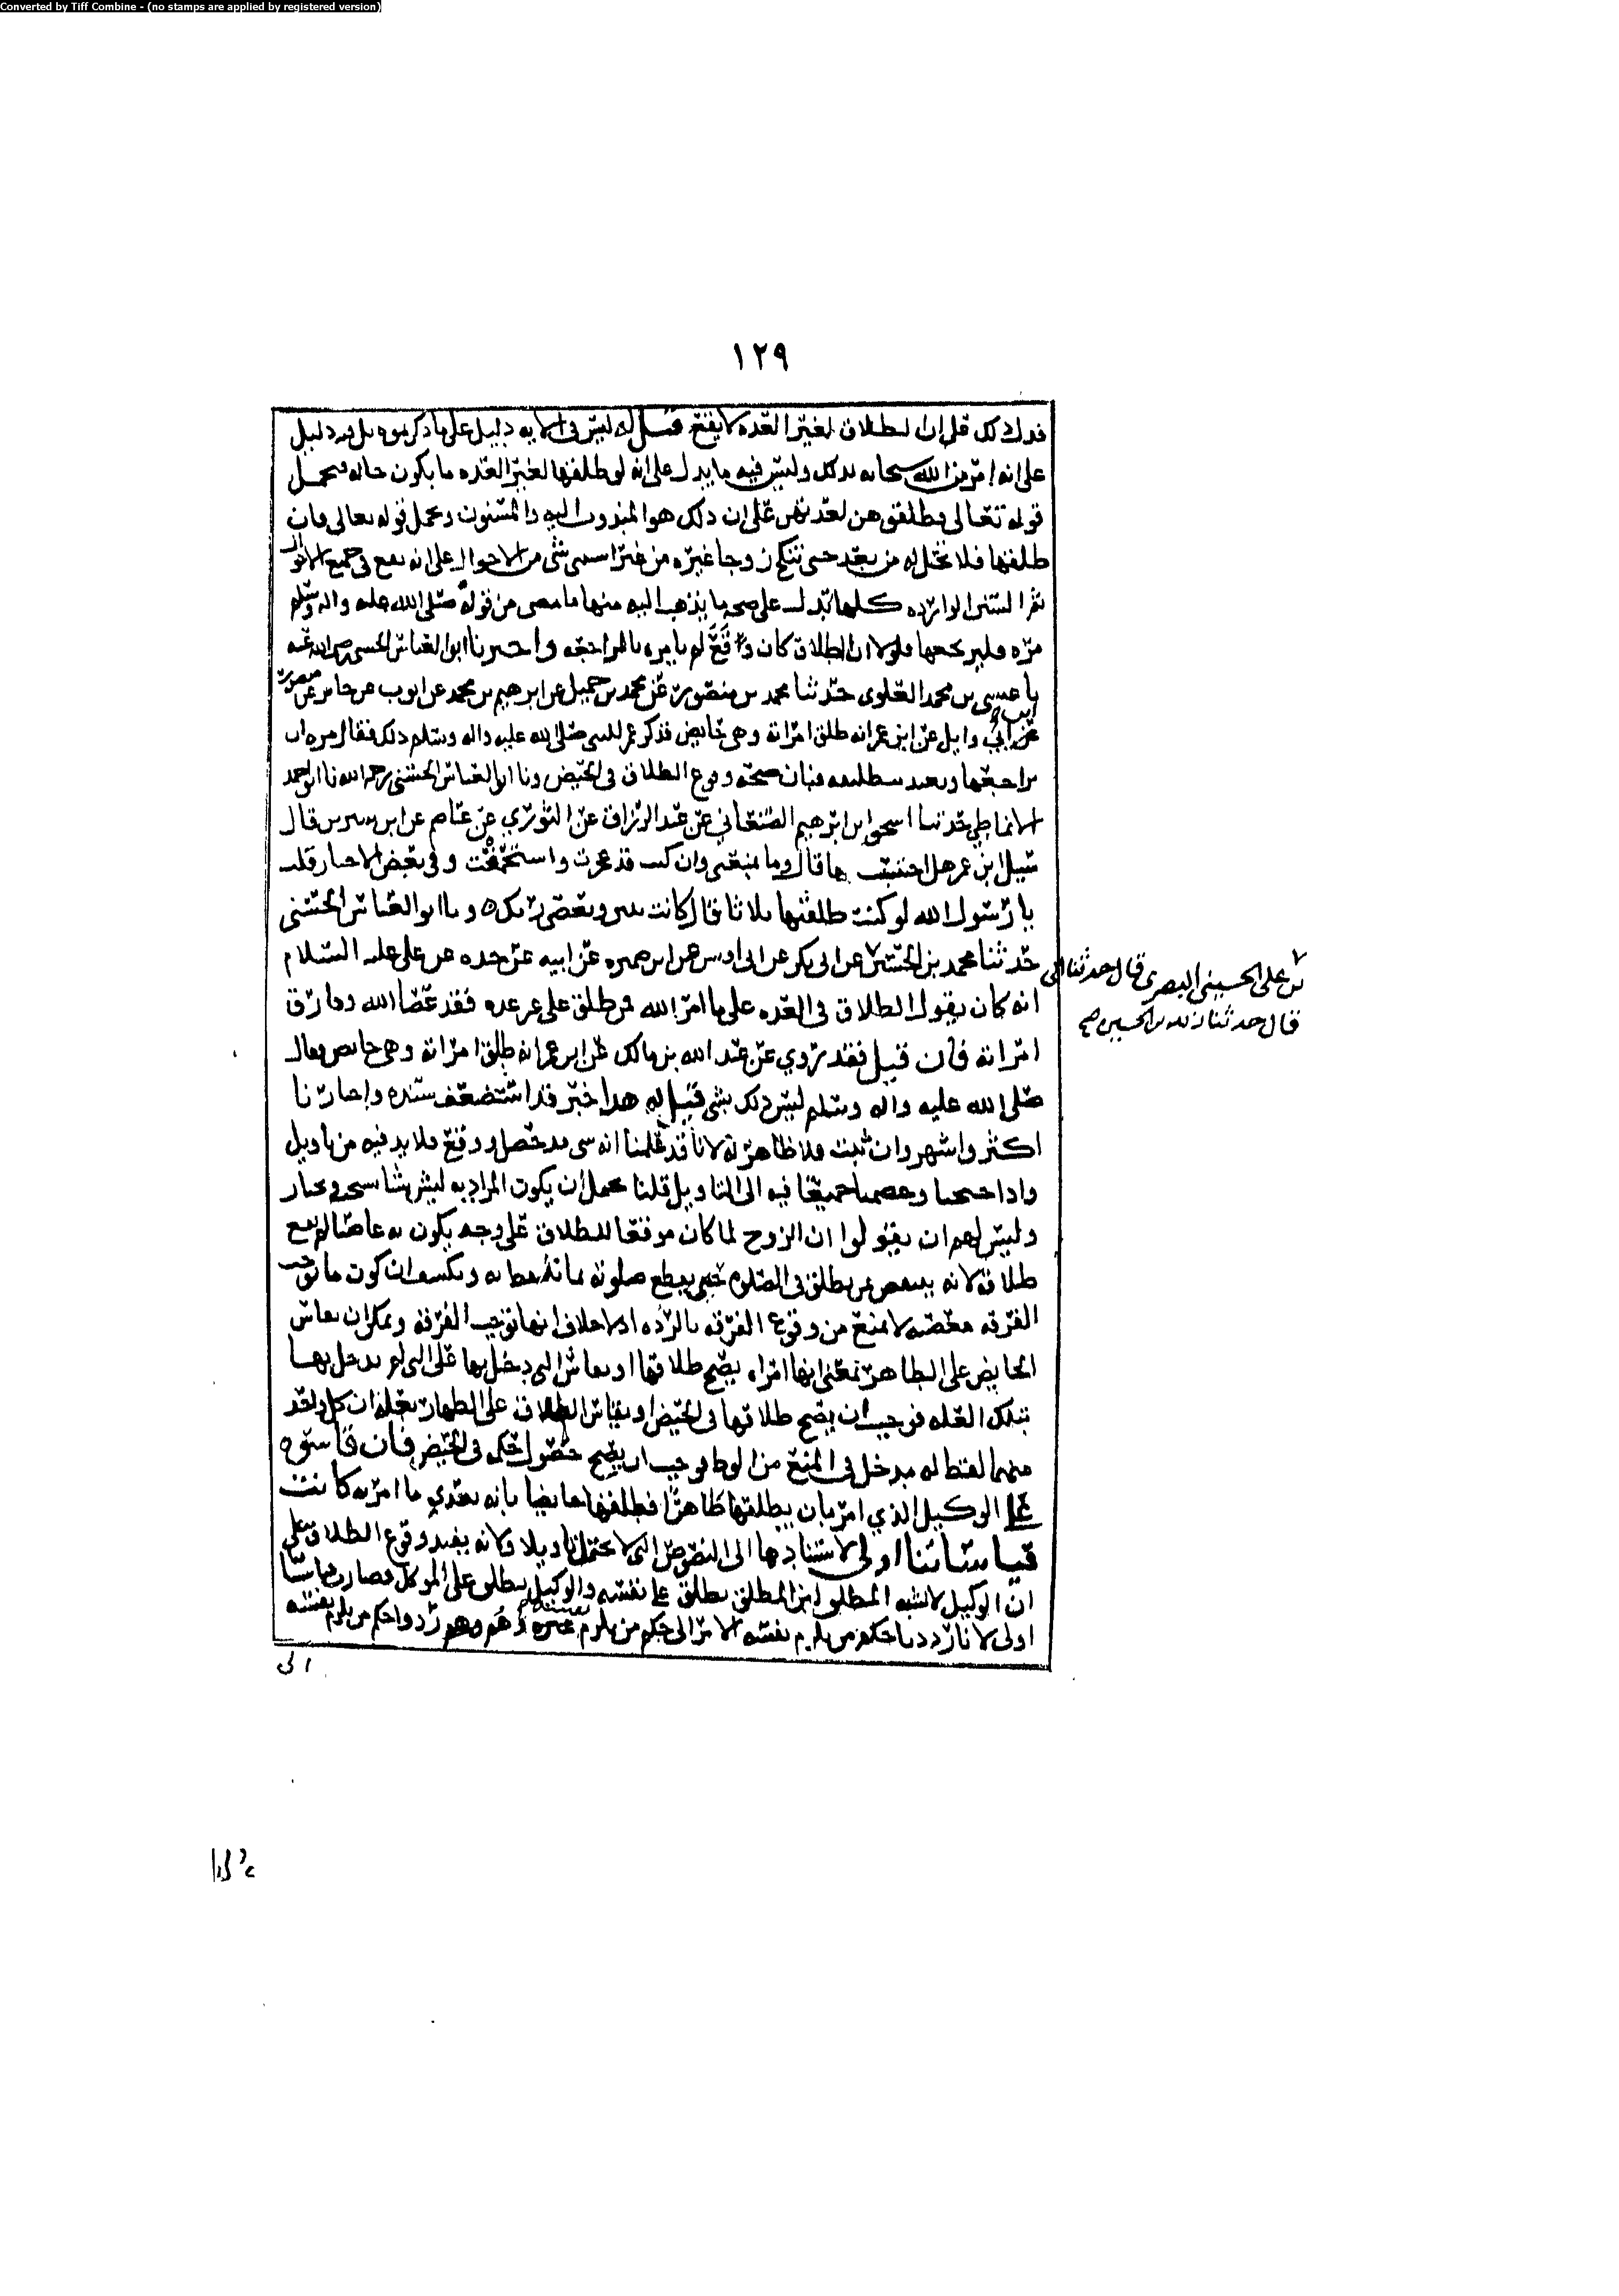 Converted by Tiff Combine - (no stamps are applied by registered version)
١٢٩
فدل ذلك على ان الطلاق لغير العده لا يقع قيل له ليس في الايه دليل على ما ذكرتموه بل فيه دليل
على انه امر من الله سبحانه بذلك وليس فيه ما يدل على انه لو طلقها لغير العده ما يكون حاله فيحمل
قوله تعالى فطلقوهن لعدتهن على ان ذلك هو المندوب اليه والمسنون ويحمل قوله تعالى فان
طلقها فلا تحل له من بعد حتى تنكح زوجا غيره من غير استثنى شي من الاحوال على انه يقع في جميع الاحوال
ثم السنن الوارده كلها تدل على صحه ما يذهب اليه منها ما مضى من قوله صلى الله عليه واله وسلم
مره فليرتجعها فلولا ان الطلاق كان وقع لم يامره بالمراجعه واخبرنا ابو العباس الحسني رضي الله عنه
نا عيسى بن محمد العلوي حدثنا محمد بن منصور عن محمد بن جميل عن ابرهيم بن محمد عن ايوب عن جابر عن منصور
عن ابي وايل عن ابن عمر انه طلق امراته وهي حايض فذكر عمر للنبي صلى الله عليه واله وسلم ذلك فقال مره ان
يراجعها ويعتد بتطليقه فبان صحة وقوع الطلاق في الحيض ونا ابو العباس الحسني رحمه الله نا ابو احمد
الانماطي حدثنا اسحق ابن ابرهيم الصنعاني عن عبد الرزاق عن الثوري عن عاصم عن ابن سيرين قال
سيل ابن عمر هل احتسبت بها قال وما يمنعني وان كنت قد عجزت واستحمقت وفي بعض الاخبار قلت
يا رسول الله لو كنت طلقتها ثلاثا قال كانت تبين وتعصي ربك ونا ابو العباس الحسني
حدثنا محمد بن الحسين عن ابي بكر عن ابي اويس عن ابن ضميره عن ابيه عن جده عن علي عليه السلام
بن علي الحسيني البصري قال حدثنا ابي
قال حدثنا زيد بن الحسين صح
انه كان يقول الطلاق في العده على ما امر الله فمن طلق على غير عده فقد عصا الله وفارق
امراته فان قيل فقد روي عن عبد الله بن مالك عن ابن عمر انه طلق امراته وهي حايض فقال
صلى الله عليه واله وسلم ليس ذلك بشي قيل له هذا خبر قد استضعف سنده واخبارنا
اكثر واشهر وان ثبت فلا ظاهر له لانا قد علمنا انه شي قد حصل ووقع فلا بد فيه من تاويل
واذا احتجنا وخصمنا جميعا فيه الى التاويل قلنا يحمل ان يكون المراد به ليس بشا يستحب ويختار
وليس لهم ان يقولوا ان الزوج لما كان موقعا للطلاق على وجه يكون به عاصيا لم يقع
طلاقه لانه ينتقض بمن يطلق في الصلوه حتى يقطع صلوته فانه خطابه وينكشف ان كون ما يوجب
الفرقه معصيه لا يمنع من وقوع الفرقه بالرده اذ لا خلاف انها توجب الفرقه ويمكن ان يقاس
الحايض على الطاهر بمعنى انها امراه يصح طلاقها او يقاس التي دخل بها على التي لم يدخل بها
بتلك العله فوجب ان يصح طلاقها في الحيض او يقاس الطلاق على الظهار بعلة ان كل واحد
منهما لفظ له مدخل في المنع من الوطى فوجب ان يصح حصول حكمه في الحيض فان قاسوه
على الوكيل الذي امر بان يطلقها طاهرا فطلقها حايضا بانه تعدي ما امر به كانت
قياساتنا اولى لاستنادها الى النصوص التي لا تحتمل تاويلا ولانه يفيد وقوع الطلاق على
ان الوكيل لا يشبه المطلق لان المطلق يطلق على نفسه والوكيل يطلق على الموكل فصار قياسنا
اولى لانا رددنا حكم من يلزم نفسه الامر الى حكم من يلزم غيره وهم ردوا حكم من يلزم نفسه
الى